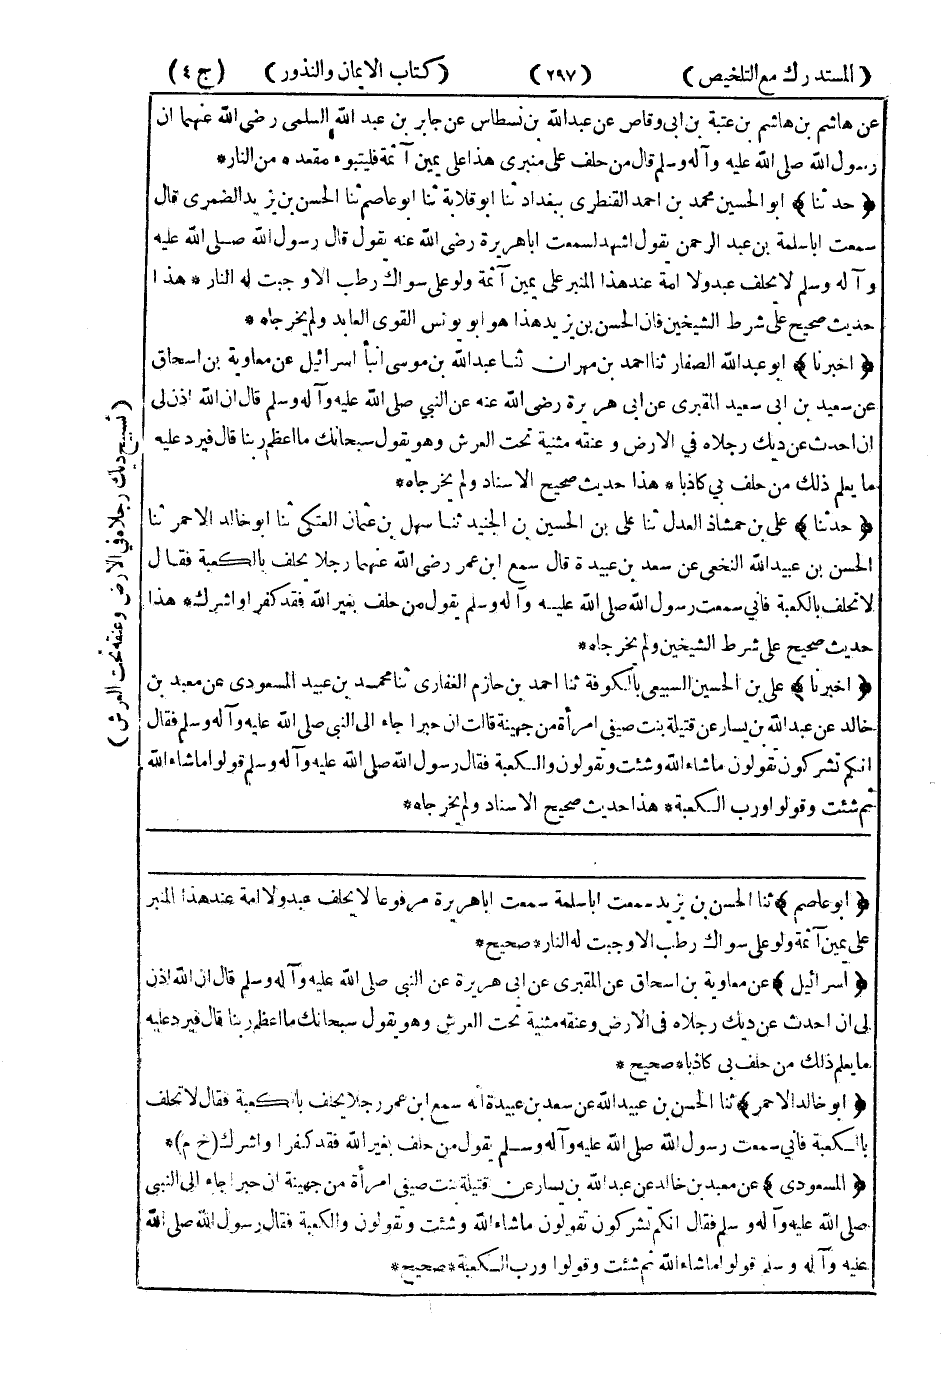 (المستدرك مع التلخيص) (٢٩٧) (كتاب الايمان والنذور) (ج ٤)
عن هاشم بن هاشم بن عتبة بن ابى وقاص عن عبدالله بن نسطاس عن جابر بن عبد الله السلمى رضى الله عنهما ان
رسول الله صلى الله عليه وآله وسلم قال من حلف على منبرى هذا على يمين آثمة فليتبوء مقعده من النار*
﴿حدثنا﴾ ابو الحسين محمد بن احمد القنطرى ببغداد ثنا ابو قلابة ثنا ابو عاصم ثنا الحسن بن يزيد الضمرى قال
سمعت ابا سلمة بن عبد الرحمن يقول اشهد لسمعت ابا هريرة رضى الله عنه يقول قال رسول الله صلى الله عليه
وآله وسلم لا يحلف عبد ولا امة عند هذا المنبر على يمين آثمة ولو على سواك رطب الا وجبت له النار * هذا
حديث صحيح على شرط الشيخين فان الحسن بن يزيد هذا هو ابو يونس القوى العابد ولم يخرجاه *
﴿اخبرنا﴾ ابو عبدالله الصفار ثنا احمد بن مهران ثنا عبدالله بن موسى انبأ اسرائيل عن معاوية بن اسحاق
عن سعيد بن ابى سعيد المقبرى عن ابى هريرة رضى الله عنه عن النبي صلى الله عليه وآله وسلم قال ان الله اذن لى
ان احدث عن ديك رجلاه في الارض و عنقه مثنية تحت العرش وهو يقول سبحانك ما اعظم ربنا قال فيرد عليه
ما يعلم ذلك من حلف بي كاذبا * هذا حديث صحيح الاسناد ولم يخرجاه*
﴿حدثنا﴾ على بن حمشاذ العدل ثنا على بن الحسين بن الجنيد ثنا سهل بن عثمان العتكى ثنا ابو خالد الاحمر ثنا
الحسن بن عبيدالله النخعى عن سعد بن عبيدة قال سمع ابن عمر رضى الله عنهما رجلا يحلف بالكعبة فقال
لا تحلف بالكعبة فاني سمعت رسول الله صلى الله عليه وآله وسلم يقول من حلف بغير الله فقد كفر او اشرك* هذا
حديث صحيح على شرط الشيخين ولم يخرجاه*
﴿اخبرنا﴾ على بن الحسين السبيعى بالكوفة ثنا احمد بن حازم الغفارى ثنا محمد بن عبيد المسعودى عن معبد بن
خالد عن عبدالله بن يسار عن قتيلة بنت صيفى امرأة من جهينة قالت ان حبرا جاء الى النبى صلى الله عليه وآله وسلم فقال
انكم تشركون تقولون ما شاء الله وشئت وتقولون والكعبة فقال رسول الله صلى الله عليه وآله وسلم قولوا ما شاء الله
ثم شئت وقولوا ورب الكعبة* هذا حديث صحيح الاسناد ولم يخرجاه*
(تسبيح ديك رجلاه في الارض وعنقه تحت العرش)
﴿ابو عاصم﴾ ثنا الحسن بن يزيد سمعت ابا سلمة سمعت ابا هريرة مرفوعا لا يحلف عبد ولا امة عند هذا المنبر
على يمين آثمة ولو على سواك رطب الا وجبت له النار*صحيح*
﴿اسرائيل﴾ عن معاوية بن اسحاق عن المقبرى عن ابى هريرة عن النبى صلى الله عليه وآله وسلم قال ان الله اذن
لى ان احدث عن ديك رجلاه فى الارض وعنقه مثنية تحت العرش وهو يقول سبحانك ما اعظم ربنا قال فيرد عليه
ما يعلم ذلك من حلف بى كاذبا*صحيح *
﴿ابو خالد الاحمر﴾ ثنا الحسن بن عبيدالله عن سعد بن عبيدة انه سمع ابن عمر رجلا يحلف بالكعبة فقال لا تحلف
بالكعبة فاني سمعت رسول الله صلى الله عليه وآله وسلم يقول من حلف بغير الله فقد كفر او اشرك(خ م)*
﴿المسعودى﴾ عن معبد بن خالد عن عبدالله بن يسار عن قتيلة بنت صيفى امرأة من جهينة ان حبرا جاء الى النبى
صلى الله عليه وآله وسلم فقال انكم تشركون تقولون ما شاء الله وشئت وتقولون والكعبة فقال رسول الله صلى الله
عليه وآله وسلم قولوا ما شاء الله ثم شئت وقولوا ورب الكعبة*صحيح*